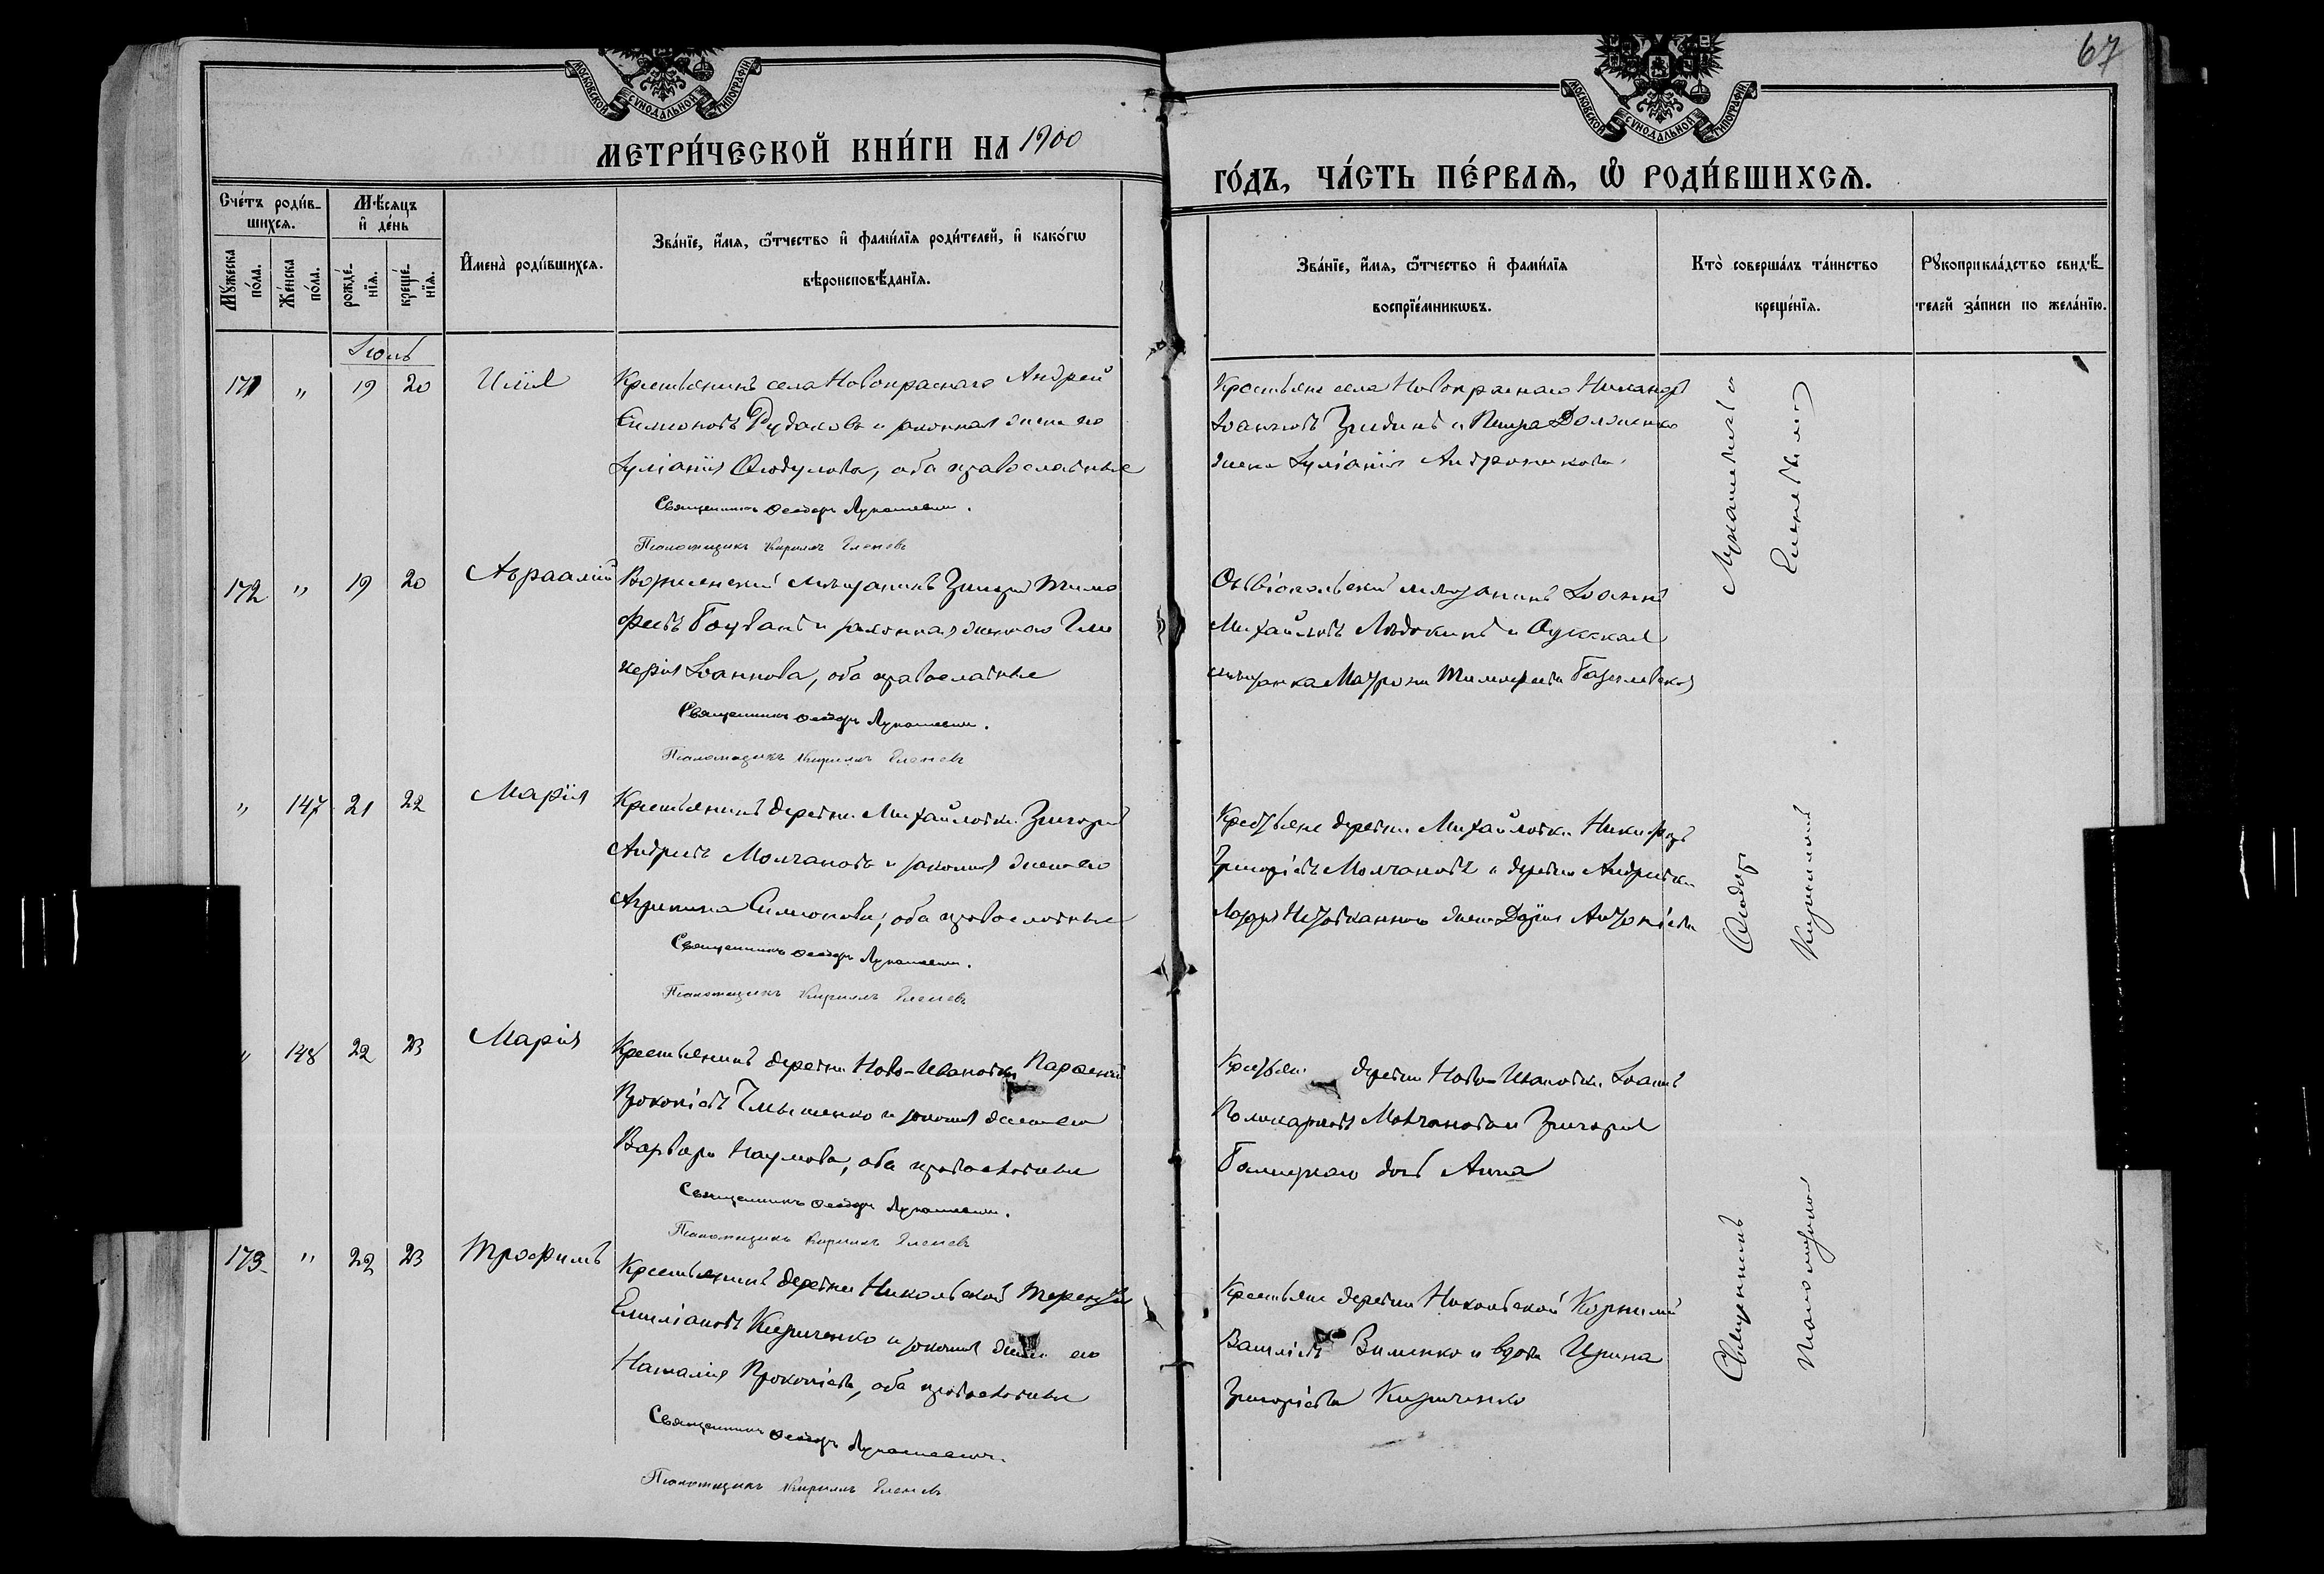 67
МОСКОВСКОЙ СѴНОДАЛЬНОЙ ТИПОГРАФІИ
МЕТРИ́ЧЕСКОЙ КНИ́ГИ НА 1900
МОСКОВСКОЙ СѴНОДАЛЬНОЙ ТИПОГРАФІИ
ГО́ДЪ, ЧА́СТЬ ПЕ́РВАЯ, Ѡ РОДИ́ВШИХСЯ.
Сче́тъ роди́в-
шихся.
Мꙋ́жеска
по́ла.
Же́нска
по́ла.
Мѣ́сяцъ
и҆ де́нь
рожде́-
нїя.
креще́-
нїя.
И҆мена̀ роди́вшихся.
Зва́нїе, и҆́мя, ѻ҆́тчество и҆ фами́лїя роди́телей, и҆ како́гѡ
вѣроисповѣ́данїя.
Зва́нїе, и҆́мя, ѻ҆́тчество и҆ фами́лїя
воспрїе́мникѡвъ.
Кто̀ соверша́лъ та́инство
креще́нїя.
Рꙋкоприкла́дство свидѣ́-
телей за́писи по жела́нїю.
Іюнь
171 " 19 20 Илія
Крестьянинъ села Новокраснаго Андрей
Симеоновъ Рудаковъ и законная жена его
Іуліанія Ѳеодулова, оба православные
Священникъ Ѳеодоръ Лукашевич.
Псаломщикъ Кириллъ Еленевъ
Крестьяне села Новокраснаго Никаноръ
Іоанновъ и Петра Долженко
жена Іуліанія Андроникова
172 " 19 20 Авраамій
мѣщанинъ Григорій Тимо
феевъ и законная жена его Гли
керія Іоаннова, оба православные
Священникъ Ѳеодоръ Лукашевич.
Псаломщикъ Кириллъ Еленевъ
Овидіопольскій мѣщанинъ Іоаннъ
Михайловъ и
мѣщанка Тимофеева
" 147 21 22 Марія
Крестьянинъ деревни Михайловки Григорій
Андреевъ Молчановъ и законная жена его
Агрипина Симеонова, оба православные
Священникъ Ѳеодоръ Лукашевич.
Псаломщикъ Кириллъ Еленевъ
Крестьяне деревни Михайловки Никифоръ
Григоріевъ Молчановъ и деревни Андреевки
жена Дарія Антоніева
" 148 22 23 Марія
Крестьянинъ деревни Ново-Ивановки
Прокопіевъ и законная жена его
Варвара Наумова, оба православные
Священникъ Ѳеодоръ Лукашевич.
Псаломщикъ Кириллъ Еленевъ
Крестьяне деревни Ново-Ивановки Іоаннъ
Поликарповъ Молчановъ и Григорія
дочь Анна
173 " 22 23 Трофимъ
Крестьянинъ деревни Никольской Терентій
Емиліановъ Кириченко и законная жена его
Наталія Прокопіева, оба православные
Священникъ Ѳеодоръ Лукашевич.
Псаломщикъ Кириллъ Еленевъ
Крестьяне деревни Никольской Корнилій
Василіевъ и вдова Ирина
Григоріева Кириченко
Священникъ Ѳеодоръ Лукашевичъ
Псаломщикъ Кириллъ Еленевъ